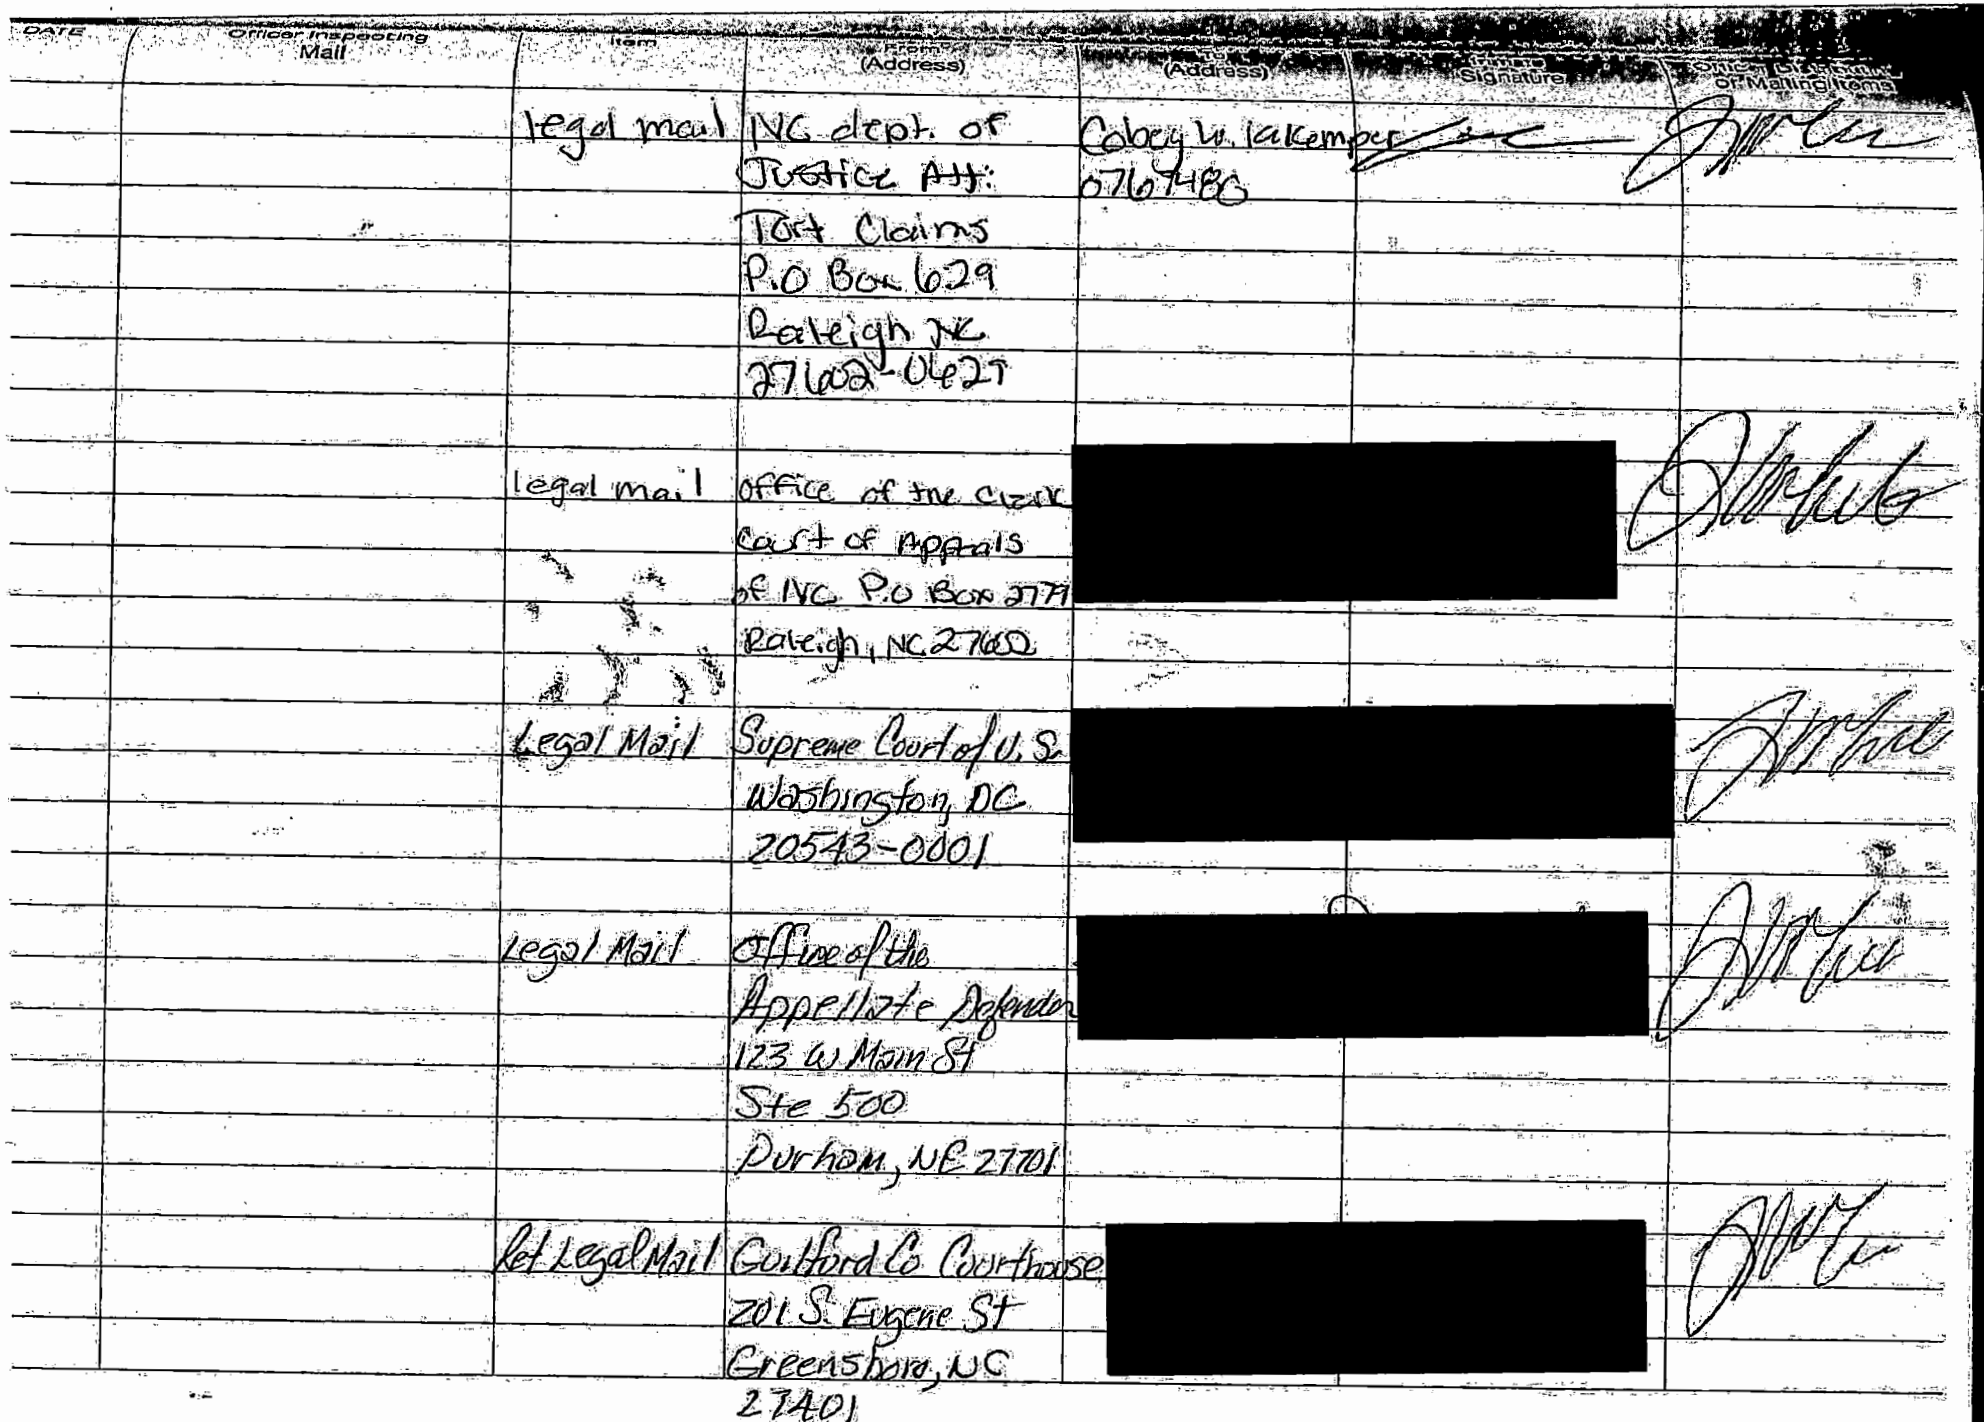 DATE Officer Inspecting Item From To Inmate
Mail (Address) (Address) Signature of Mailing Items
legal mail NC dept. of Cobey W. lakemper
Justice Att: 0767480
Tort Claims
P.O Box 629
Raleigh NC
27602-0629
legal mail office of the Clerk
Court of Appeals
of NC P.O Box 2779
Raleigh, NC 27602
Legal Mail Supreme Court of U.S.
Washington, DC
20543-0001
Legal Mail Office of the
Appellate Defender
123 W Main St
Ste 500
Durham, NC 27701
Ret Legal Mail Guilford Co Courthouse
201 S. Eugene St
Greensboro, NC
27401